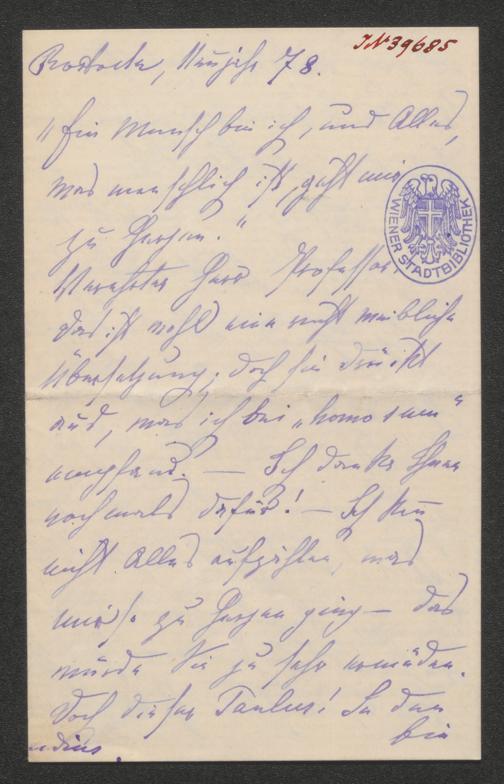 JN 39685
Rostock, Neujahr 78.
"Ein Mensch bin ich, und Alles,
was menschlich ist, geht mir
zu Herzen."
WIENER STADTBIBLIOTHEK
Verehrter Herr Professor,
das ist wohl eine recht weibliche
Übersetzung; doch sie drückt
aus, was ich bei "homo sum"
empfand. — Ich danke Ihnen
nochmals dafür! — Ich kann
nicht Alles aufzählen, was
mir so zu Herzen ging — das
würde Sie zu sehr ermüden.
Doch dieser Paulus! In den
bin